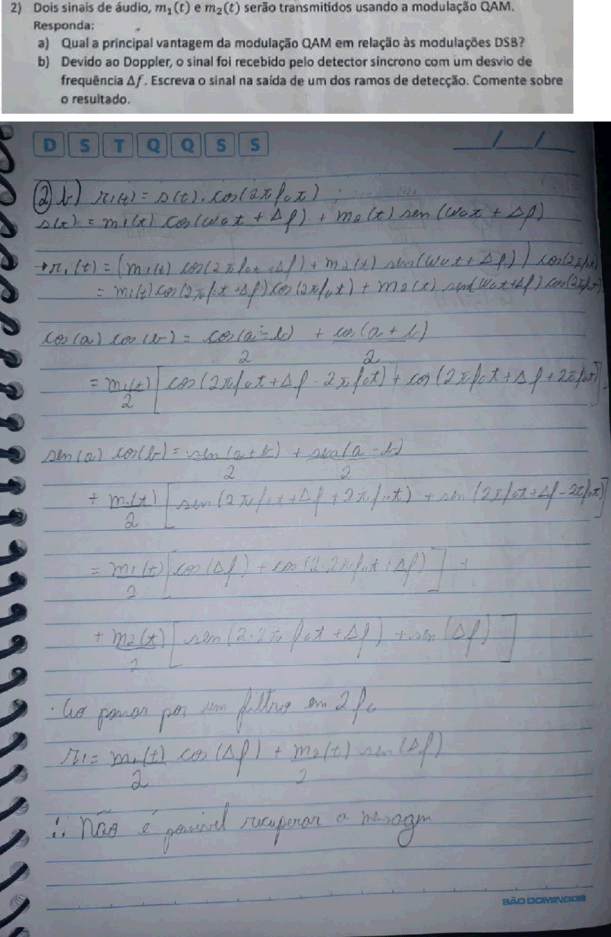 2) Dois sinais de áudio, m₁(t) e m₂(t) serão transmitidos usando a modulação QAM.
Responda:
a) Qual a principal vantagem da modulação QAM em relação às modulações DSB?
b) Devido ao Doppler, o sinal foi recebido pelo detector síncrono com um desvio de
frequência Δf. Escreva o sinal na saída de um dos ramos de detecção. Comente sobre
o resultado.
D S T Q Q S S
2) b) r1(t) = s(t) . cos(2πf₀t)
s(t) = m1(t) cos(w₀t + Δf) + m2(t) sen(w₀t + Δf)
→ r1(t) = (m1(t) cos(2πf₀t + Δf) + m2(t) sen(w₀t + Δf)) cos(2πf₀t)
= m1(t) cos(2πf₀t + Δf) cos(2πf₀t) + m2(t) sen(w₀t + Δf) cos(2πf₀t)
cos(a) cos(b) = cos(a - b)/2 + cos(a + b)/2
= m1(t)/2 [cos(2πf₀t + Δf - 2πf₀t) + cos(2πf₀t + Δf + 2πf₀t)]
sen(a) cos(b) = sen(a + b)/2 + sen(a - b)/2
+ m2(t)/2 [sen(2πf₀t + Δf + 2πf₀t) + sen(2πf₀t + Δf - 2πf₀t)]
= m1(t)/2 [cos(Δf) + cos(2.2πf₀t + Δf)] +
+ m2(t)/2 [sen(2.2πf₀t + Δf) + sen(Δf)]
. Ao passar por um filtro em 2f₀
r1 = m1(t)/2 cos(Δf) + m2(t)/2 sen(Δf)
∴ Não é possível recuperar a mensagem
SÃO DOMINGOS